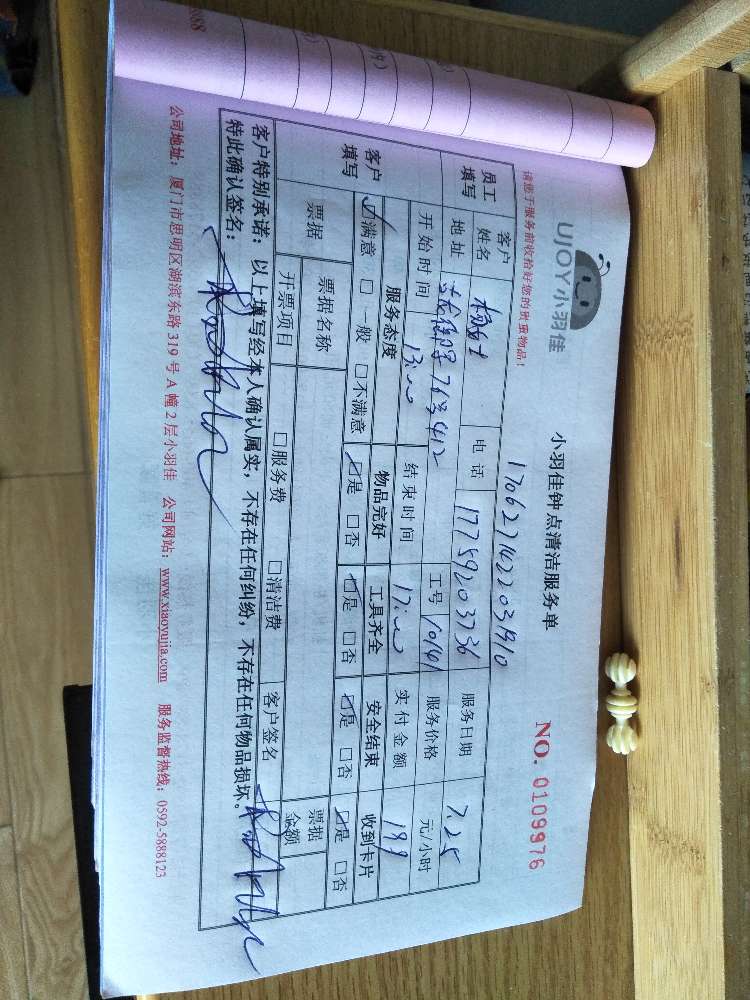 UJOY小羽佳
小羽佳钟点清洁服务单
NO. 0109976
请您于服务前收拾好您的贵重物品！
员工填写 客户姓名 电话 17759203736 服务日期 7.25
地址 工号 10161 服务价格 元/小时
开始时间 13:00 结束时间 17:00 实付金额 199
客户填写 服务态度 物品完好 工具齐全 安全结束 收到卡片
☑满意 □一般 □不满意 ☑是 □否 ☑是 □否 ☑是 □否 ☑是 □否
票据 票据名称 客户签名 票据金额
开票项目 □服务费 □清洁费
客户特别承诺：以上填写经本人确认属实，不存在任何纠纷，不存在任何物品损坏。
特此确认签名：
公司地址：厦门市思明区湖滨东路 319 号 A 幢 2 层小羽佳 公司网站：www.xiaoyujia.com 服务监督热线：0592-5888123